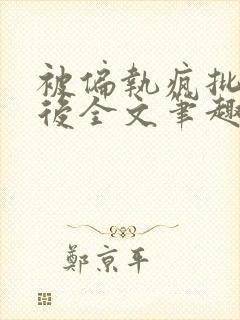 被偏執瘋批
後全文筆趣
鄭京平